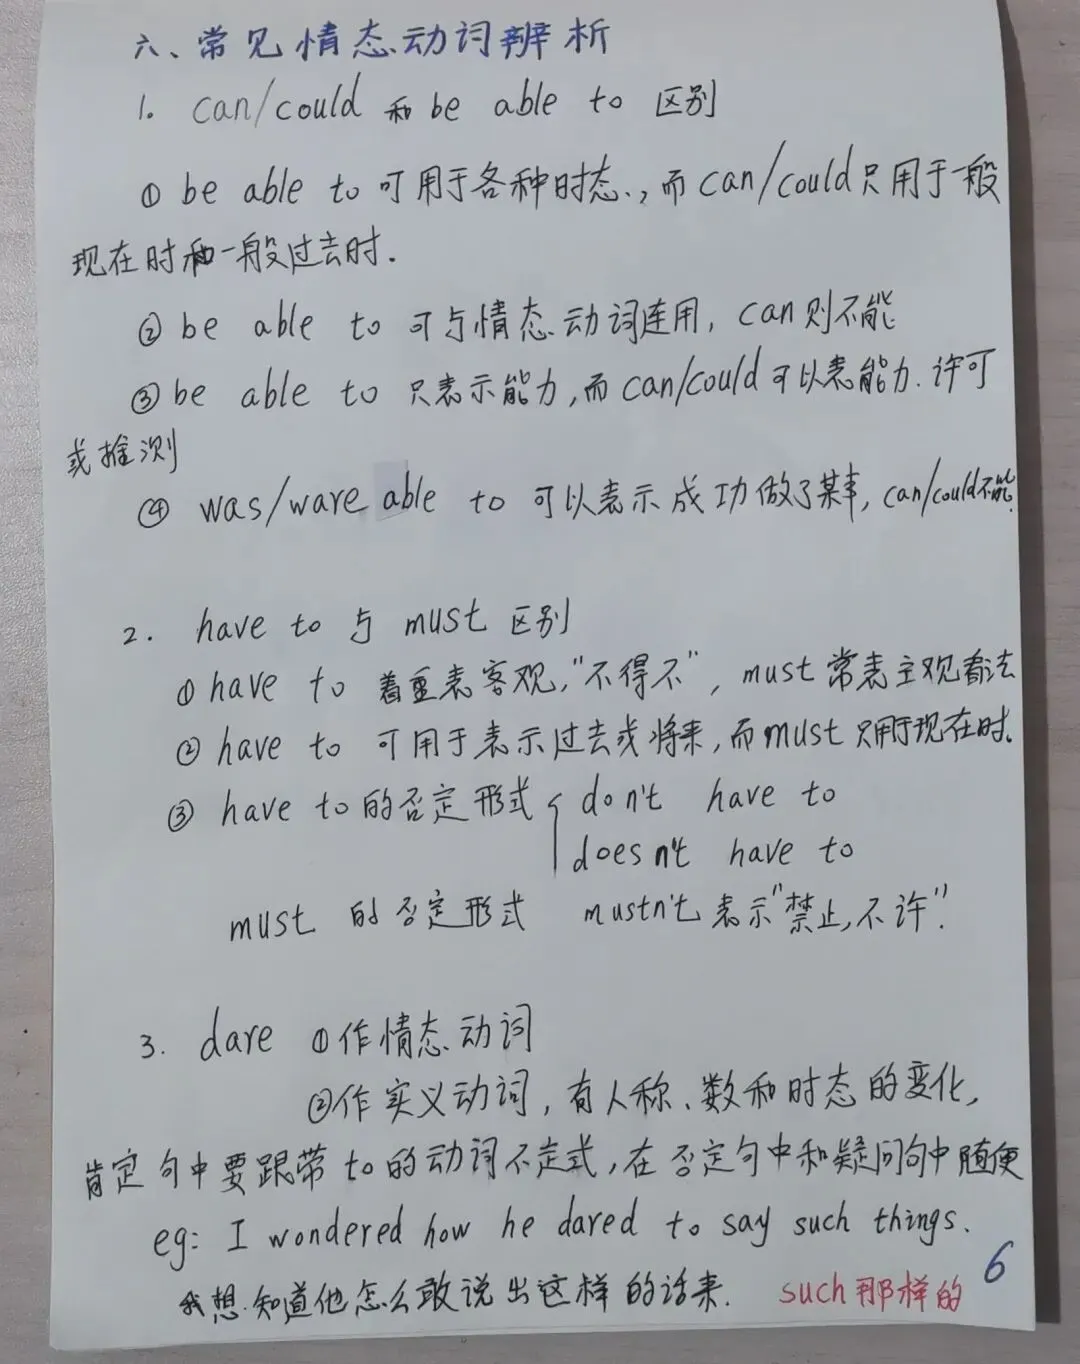 六、常见情态动词辨析
1. can/could 和 be able to 区别
① be able to 可用于各种时态.,而 can/could 只用于一般
现在时和一般过去时.
② be able to 可与情态动词连用, can 则不能
③ be able to 只表示能力,而 can/could 可以表能力.许可
或推测
④ was/ware able to 可以表示成功做了某事, can/could不能.
2. have to 与 must 区别
① have to 着重表客观,"不得不", must 常表主观看法
② have to 可用于表示过去或将来,而 must 只用于现在时.
③ have to 的否定形式 { don't have to
doesn't have to
must 的否定形式 mustn't 表示"禁止,不许".
3. dare ①作情态动词
②作实义动词,有人称、数和时态的变化,
肯定句中要跟带 to 的动词不定式,在否定句中和疑问句中随便
eg: I wondered how he dared to say such things.
我想知道他怎么敢说出这样的话来. such 那样的
6